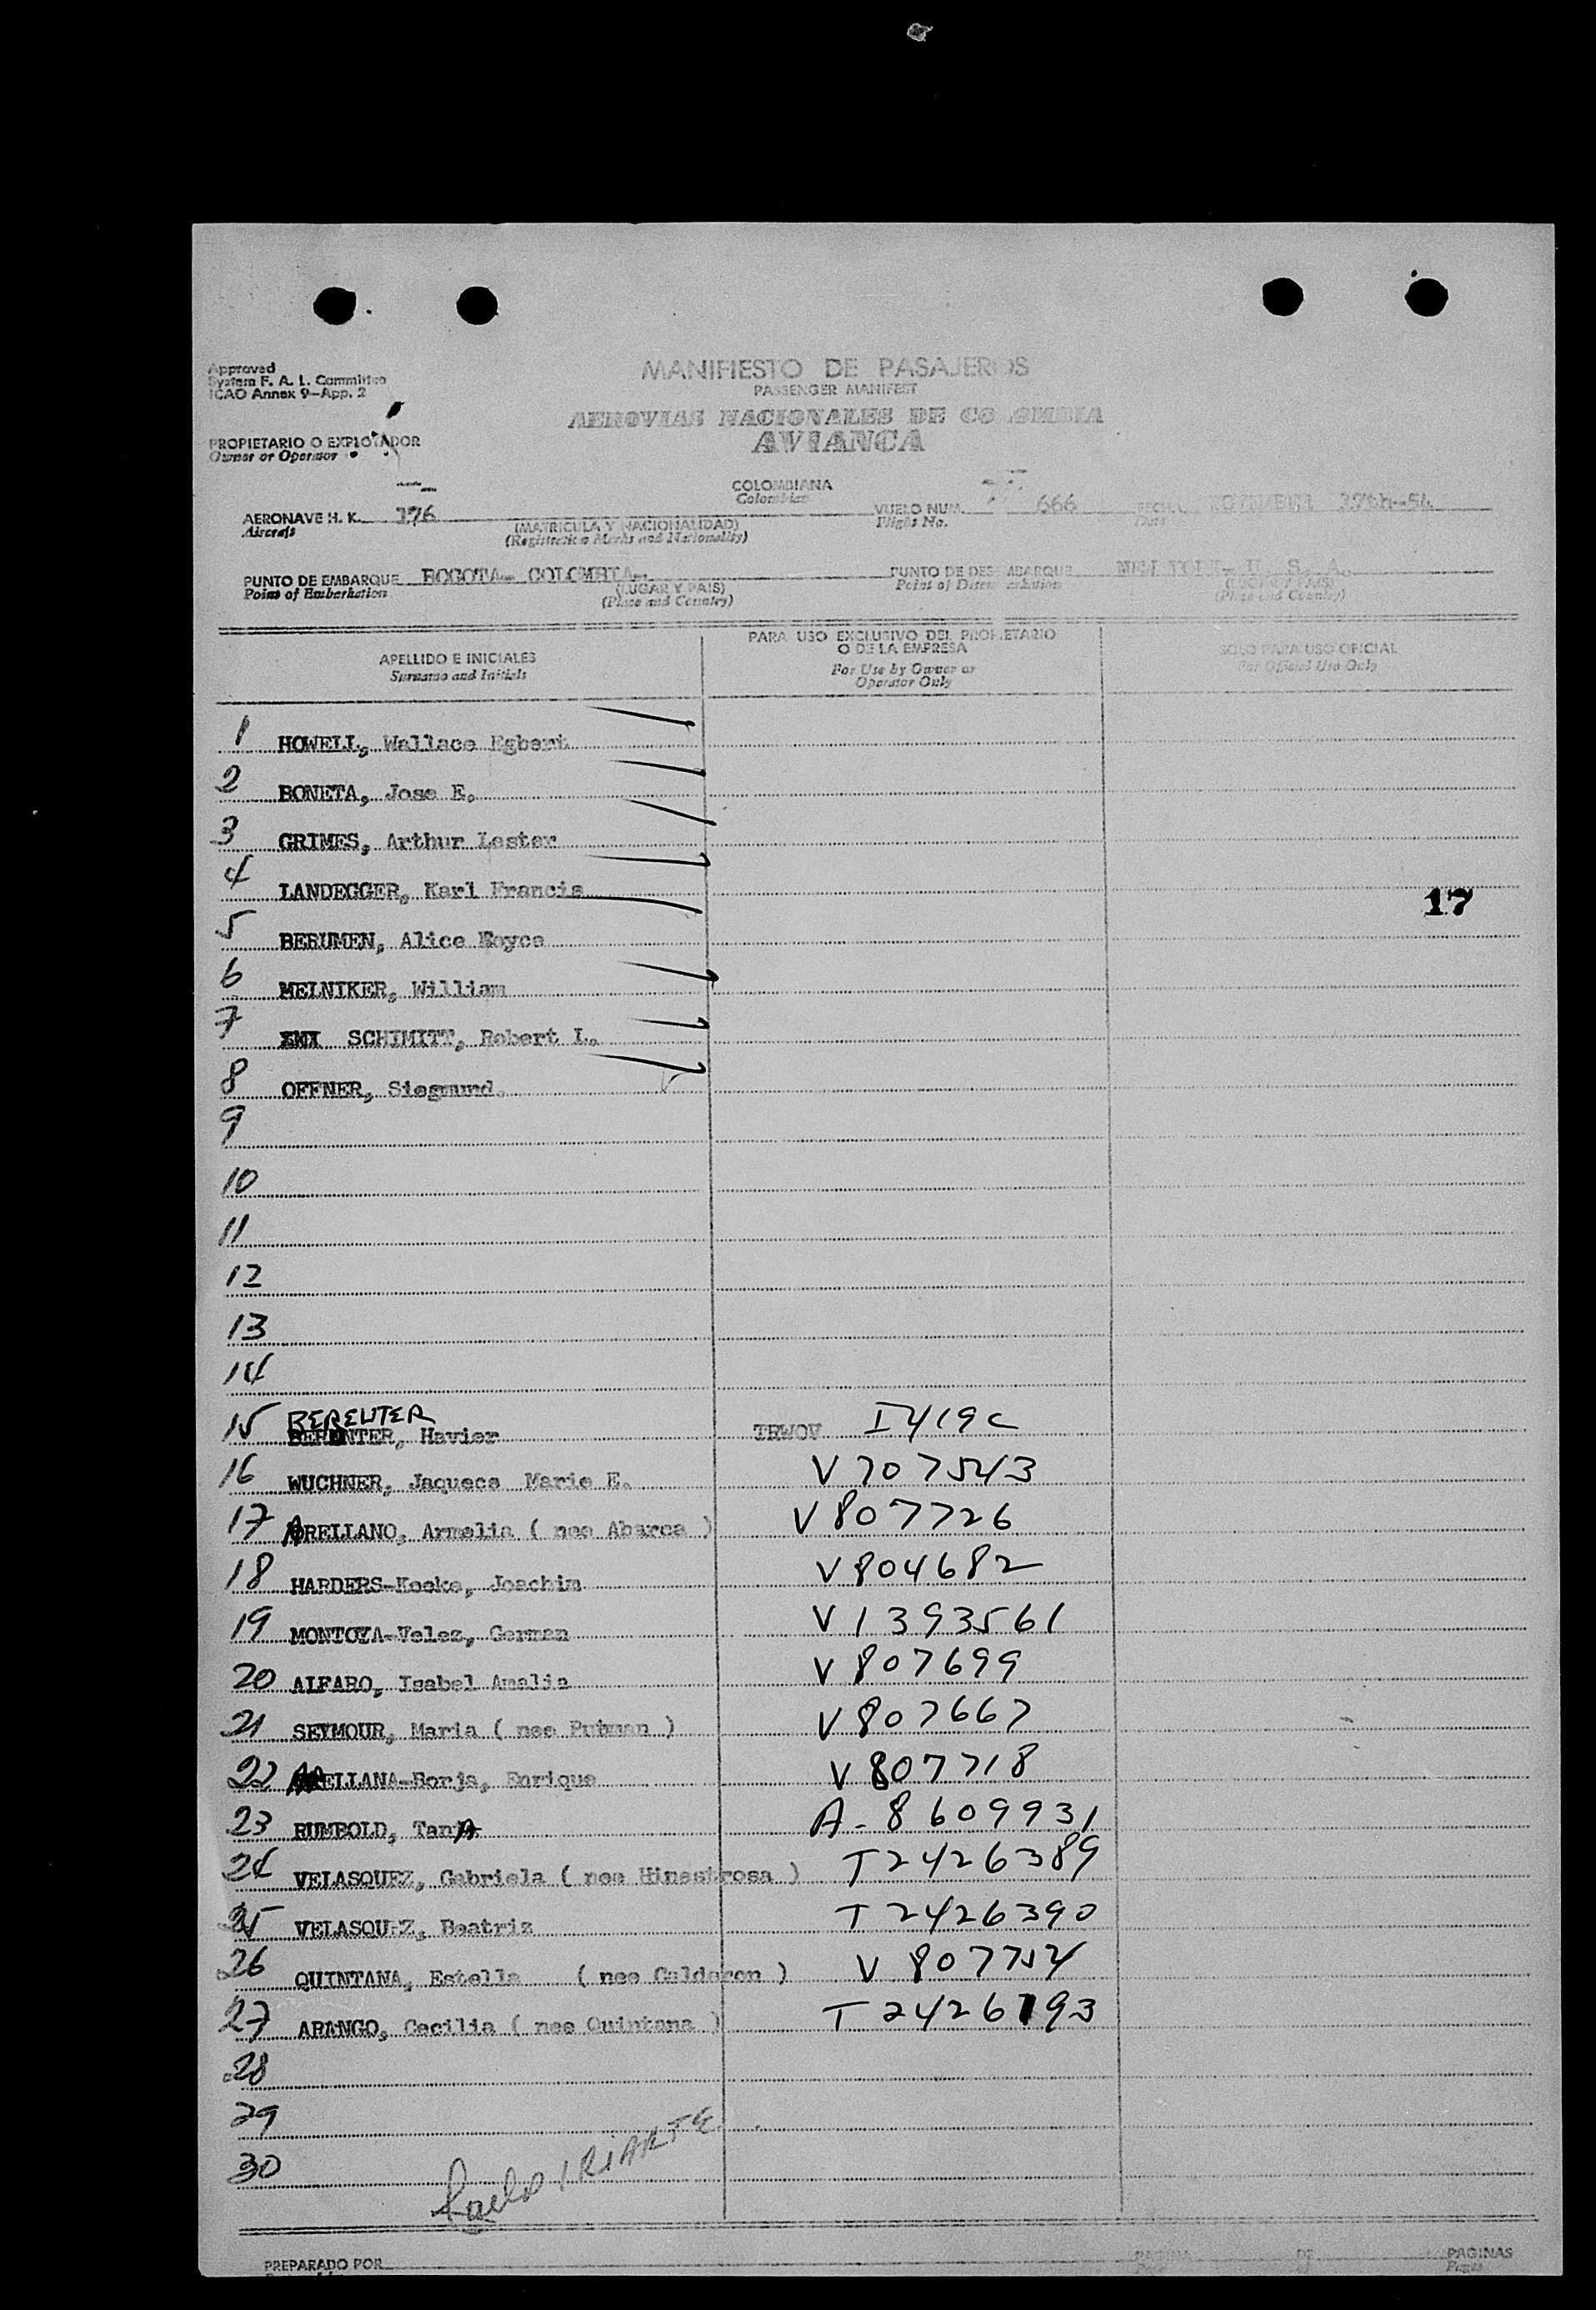 Approved
System F. A. L. Committee
ICAO Annex 9-App. 2
MANIFIESTO DE PASAJEROS
PASSENGER MANIFEST
AEROVIAS NACIONALES DE COLOMBIA
AVIANCA
PROPIETARIO O EXPLOTADOR
Owner or Operator
COLOMBIANA
Colombian
AERONAVE H. K. 176 VUELO NUM. 666 FECHA NOVEMBER -54
Aircraft (MATRICULA Y NACIONALIDAD) Flight No. Date
(Registration Marks and Nationality)
PUNTO DE EMBARQUE BOGOTA- COLOMBIA- PUNTO DE DESEMBARQUE NEW YORK- U. S. A.
Point of Embarkation (LUGAR Y PAIS) Point of Disembarkation (LUGAR Y PAIS)
(Place and Country) (Place and Country)
APELLIDO E INICIALES PARA USO EXCLUSIVO DEL PROPIETARIO O DE LA EMPRESA SOLO PARA USO OFICIAL
Surname and Initials For Use by Owner or Operator Only For Official Use Only
1 HOWELL, Wallace Egbert
2 BONETA, Jose E.
3 GRIMES, Arthur Lester
4 LANDEGGER, Karl Francis
17
5 BERUMEN, Alice
6 MELNIKER, William
7 SCHIMITT, Robert L.
8 OFFNER, Siegmund.
9
10
11
12
13
14
BEREUTER
15 BERENTER, Havier TRWOV I419C
16 WUCHNER, Jaquece Marie E. V707543
17 ARELLANO, Armelia ( nee Abarca ) V807726
18 HARDERS-Keeke, Joachim V804682
19 MONTOYA-Velez, German V1393561
20 ALFARO, Isabel Amalia V807699
21 SEYMOUR, Maria ( nee Putman ) V807667
22 ARELLANA-Borja, Enrique V807718
23 RUMBOLD, TanJA A-8609931
24 VELASQUEZ, Gabriela ( nee Hinestrosa ) T2426389
25 VELASQUEZ, Beatriz T2426390
26 QUINTANA, Estella ( nee Calderon ) V807754
27 ARANGO, Cecilia ( nee Quintana ) T2426793
28
29
30
IRIARTE
PREPARADO POR PAGINA DE PAGINAS
Pages